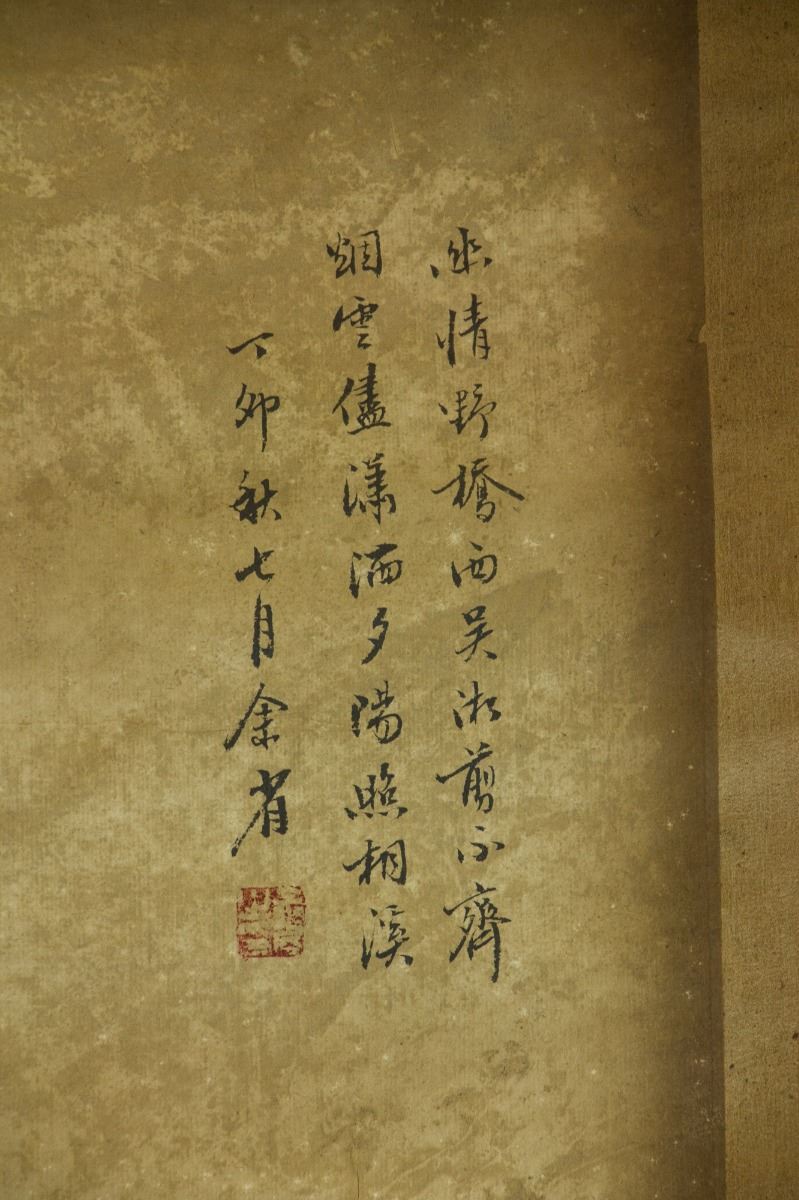 幽情野橋西吴淞剪不齊
烟雲儘瀟洒夕陽照相溪
丁卯秋七月余省